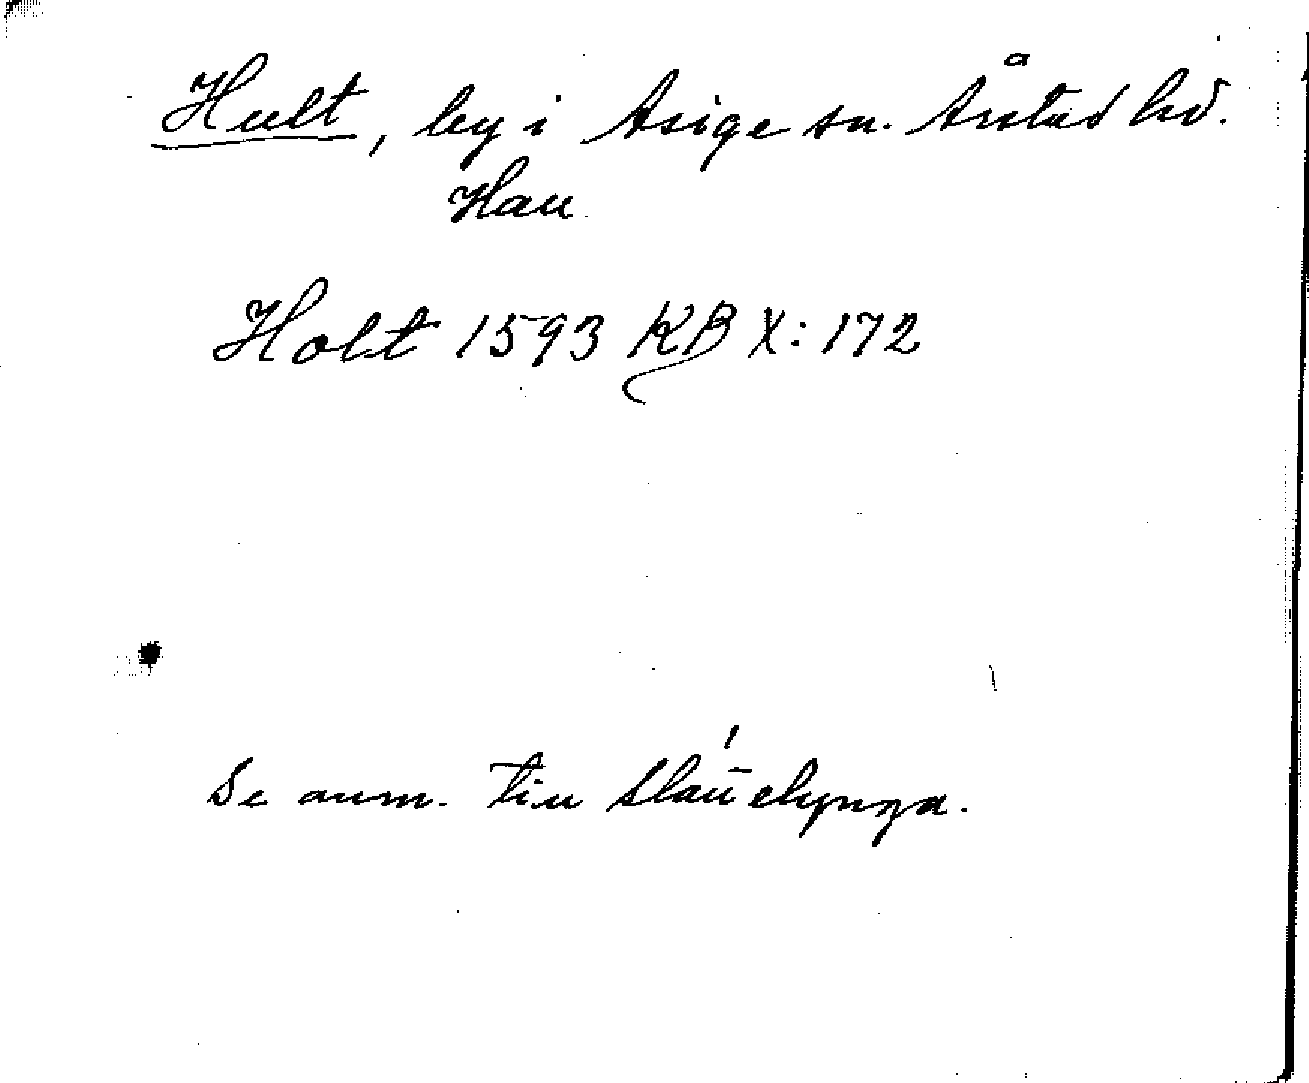 Hult, by i Asige sn. Årstad hd.
Hall
Holt 1593 KB X: 172
Se anm. till